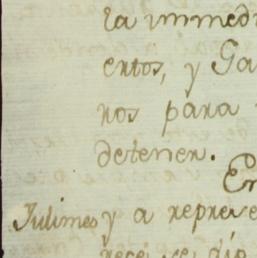 la immedi
entos, y Ga
nos para
detener.
En
Julimes y a repre